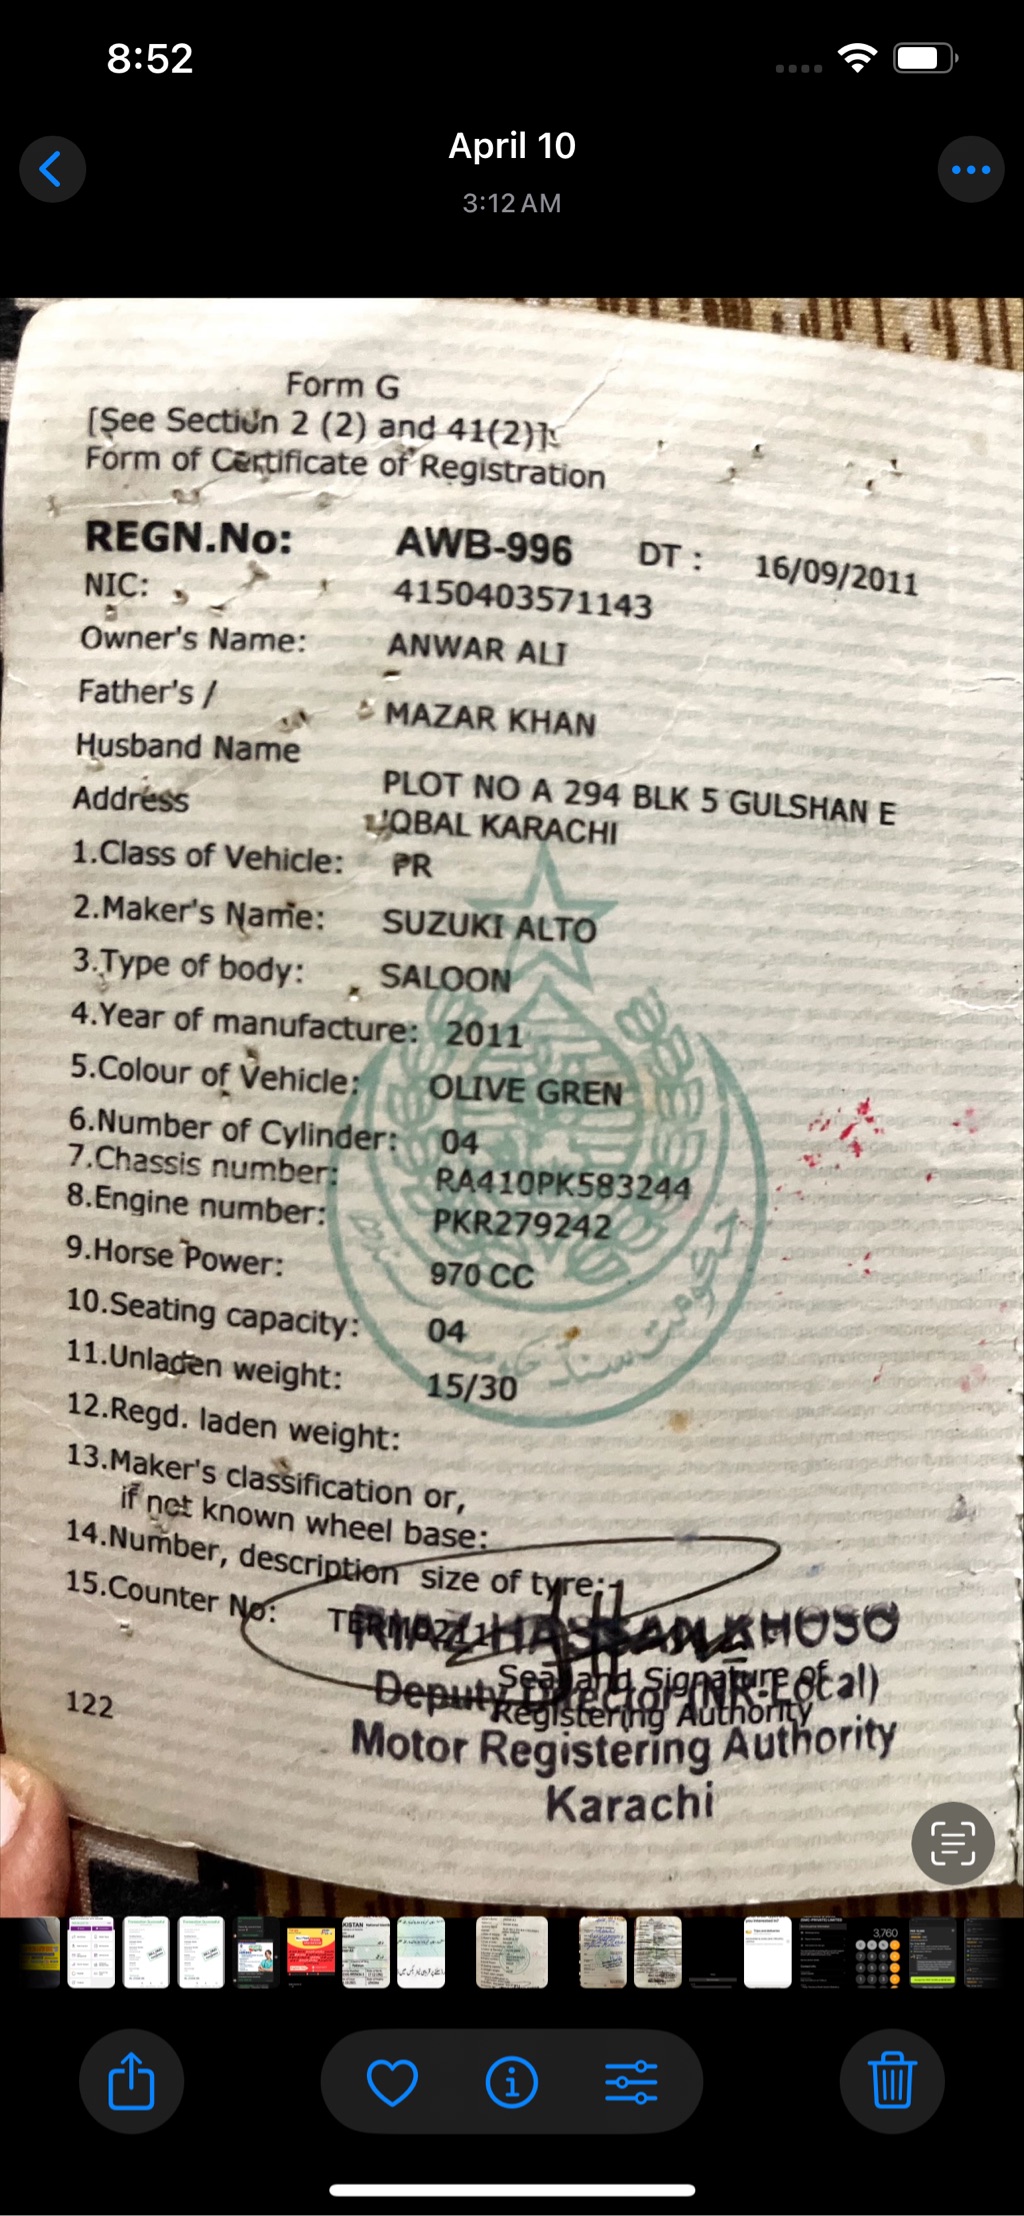 8:52
April 10
3:12 AM
Form G
[See Section 2 (2) and 41(2)]
Form of Certificate of Registration
REGN.No: AWB-996 DT : 16/09/2011
NIC: 4150403571143
Owner's Name: ANWAR ALI
Father's / MAZAR KHAN
Husband Name
Address PLOT NO A 294 BLK 5 GULSHAN E
IQBAL KARACHI
1.Class of Vehicle: PR
2.Maker's Name: SUZUKI ALTO
3.Type of body: SALOON
4.Year of manufacture: 2011
5.Colour of Vehicle: OLIVE GREN
6.Number of Cylinder: 04
7.Chassis number: RA410PK583244
8.Engine number: PKR279242
9.Horse Power: 970 CC
10.Seating capacity: 04
11.Unladen weight: 15/30
12.Regd. laden weight:
13.Maker's classification or,
if not known wheel base:
14.Number, description size of tyre:
15.Counter No:
RIAZ HASSAN KHOSO
Seal and Signature of
Deputy Director (NR-Local)
Registering Authority
122
Motor Registering Authority
Karachi
حکومت سندھ
3,760